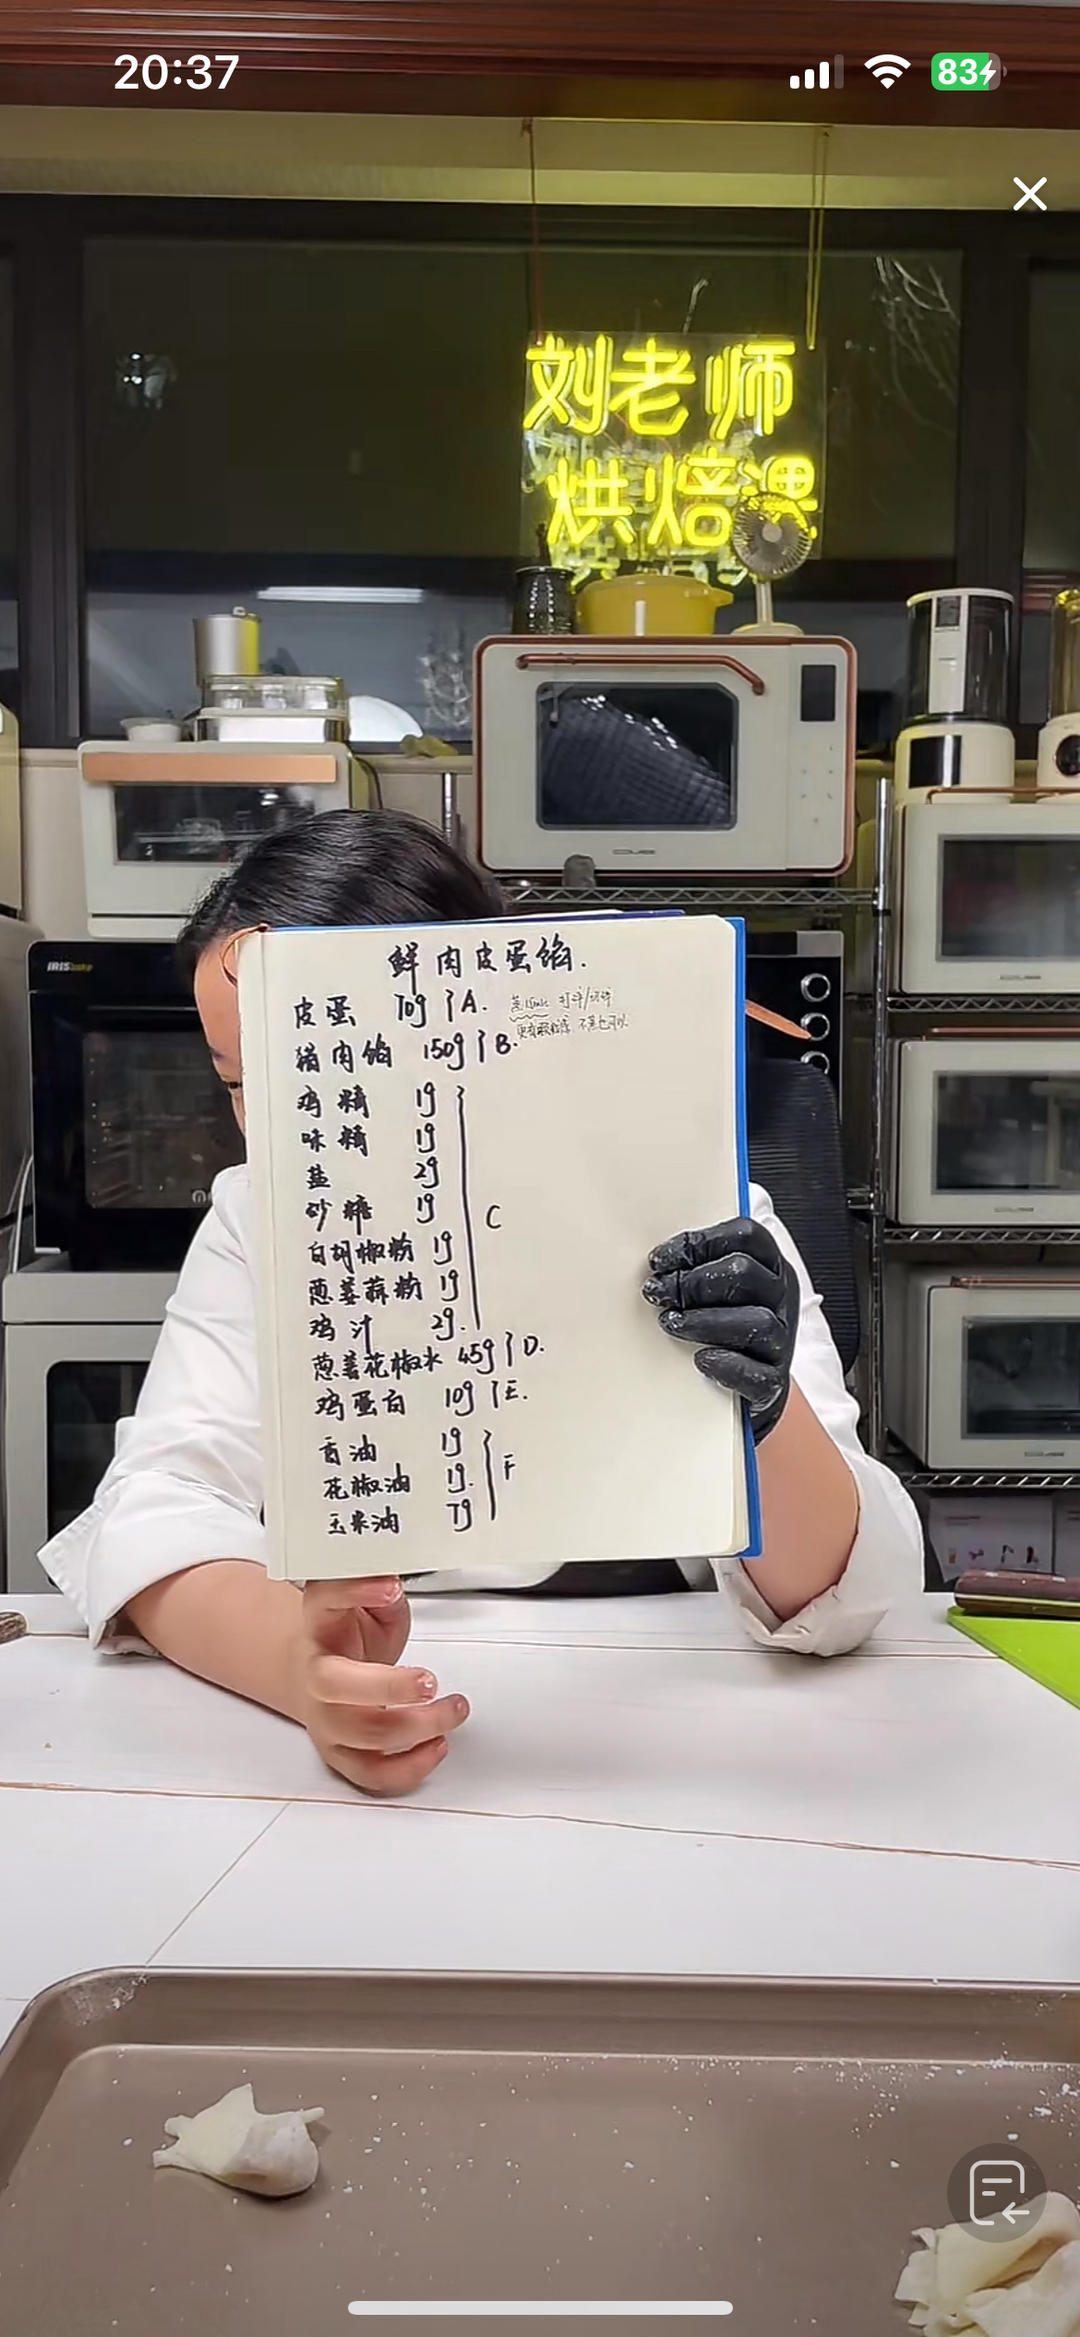 20:37
83
刘老师
烘焙课
IRISbake
鲜肉皮蛋馅.
皮蛋 70g }A. 蒸15min 打碎/切碎
不蒸也可以
猪肉馅 150g }B.
鸡精 1g
味精 1g
盐 2g
砂糖 1g
C
白胡椒粉 1g
葱姜蒜粉 1g
鸡汁 2g.
葱姜花椒水 45g }D.
鸡蛋白 10g }E.
香油 1g
花椒油 1g.
F
玉米油 7g